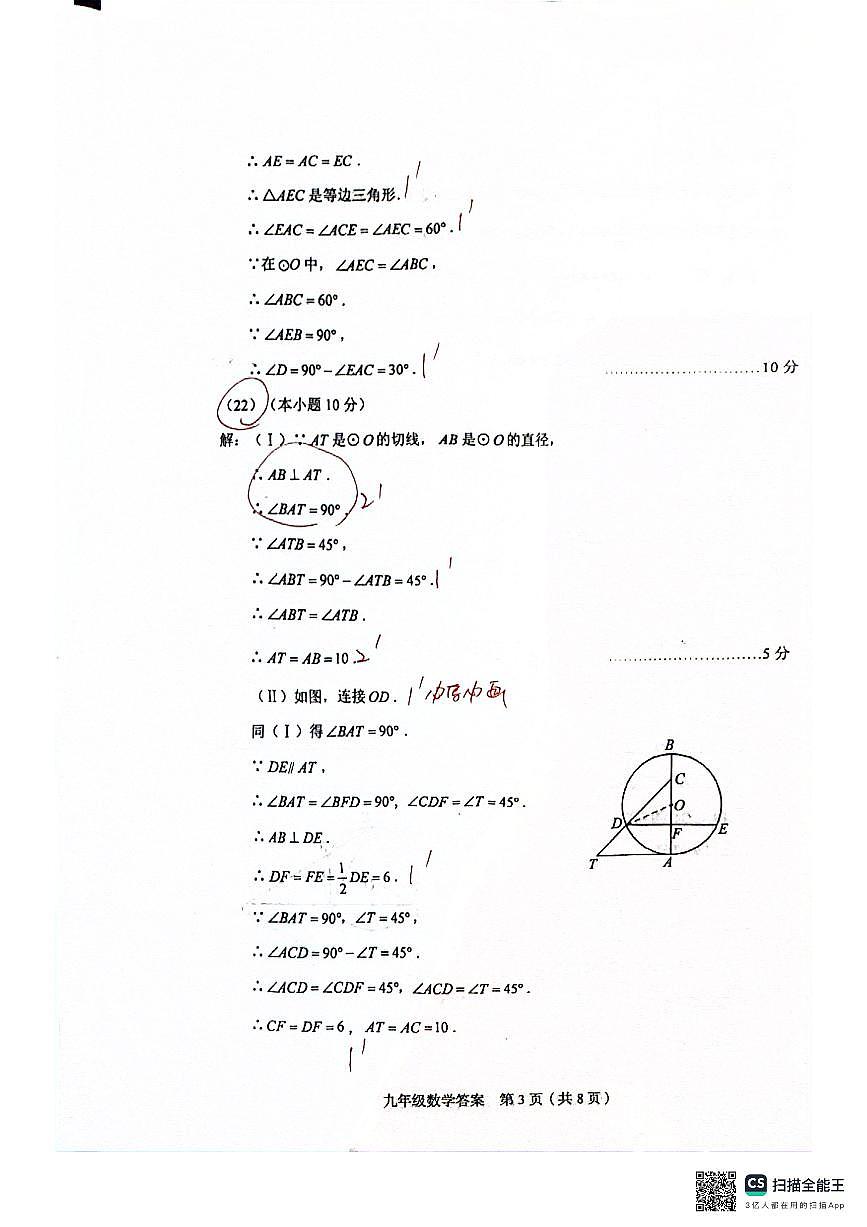 ∴ AE = AC = EC .
∴ △AEC 是等边三角形. 1'
∴ ∠EAC = ∠ACE = ∠AEC = 60° . 1'
∵在⊙O 中， ∠AEC = ∠ABC ，
∴ ∠ABC = 60° .
∵ ∠AEB = 90° ，
∴ ∠D = 90° − ∠EAC = 30° . 1' ..............................10 分
（22）（本小题 10 分）
解：（Ⅰ）∵ AT 是⊙O 的切线， AB 是⊙O 的直径，
∴ AB ⊥ AT .
∴ ∠BAT = 90° . 2'
∵ ∠ATB = 45° ，
∴ ∠ABT = 90° − ∠ATB = 45° . 1'
∴ ∠ABT = ∠ATB .
∴ AT = AB = 10 . 2' ..............................5 分
（Ⅱ）如图，连接 OD . 1'
同（Ⅰ）得 ∠BAT = 90° .
∵ DE∥AT ，
∴ ∠BAT = ∠BFD = 90°, ∠CDF = ∠T = 45° .
∴ AB ⊥ DE .
∴ DF = FE = 1/2 DE = 6 . 1'
∵ ∠BAT = 90°, ∠T = 45° ，
∴ ∠ACD = 90° − ∠T = 45° .
∴ ∠ACD = ∠CDF = 45°, ∠ACD = ∠T = 45° .
∴ CF = DF = 6 , AT = AC = 10 .
1'
B
C
O
D
F
E
T
A
九年级数学答案 第 3 页（共 8 页）
CS 扫描全能王
3亿人都在用的扫描App